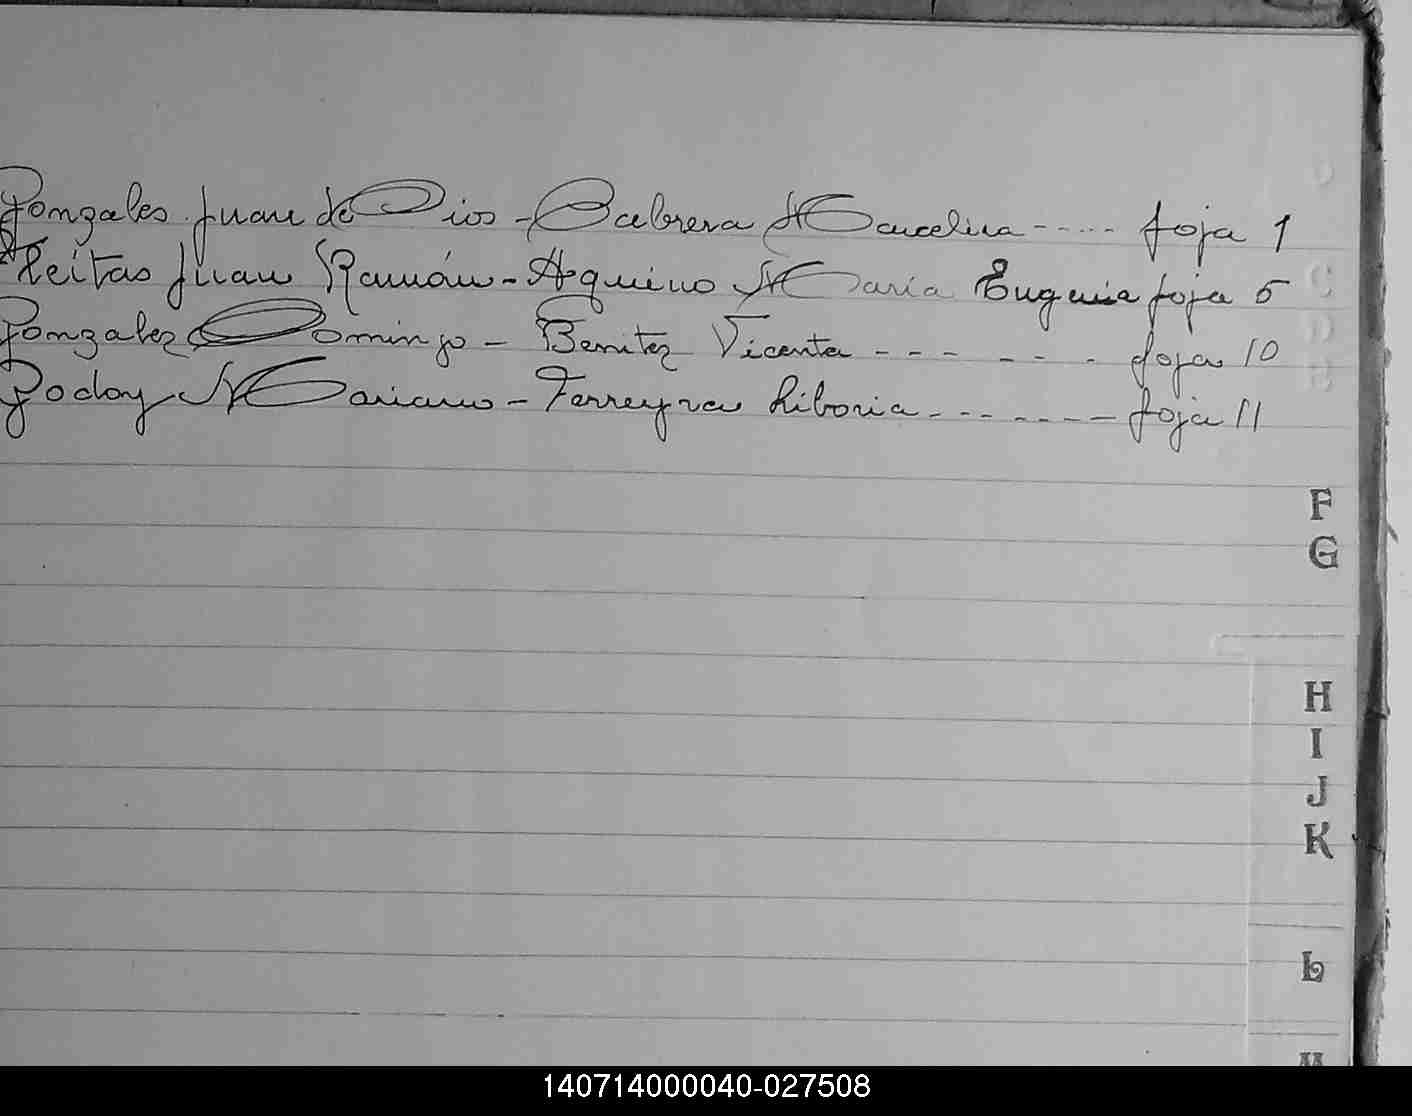 Gonzales Juan de Dios - Cabrera Marcelina ----- foja 1
Fleitas Juan Ramón - Aquino María Eugenia foja 5
Gonzalez Domingo - Benitez Vicenta - - - - - - foja 10
Godoy Mariano - Ferreyra Liboria - - - - - - - foja 11
F
G
H
I
J
K
L
M
140714000040-027508